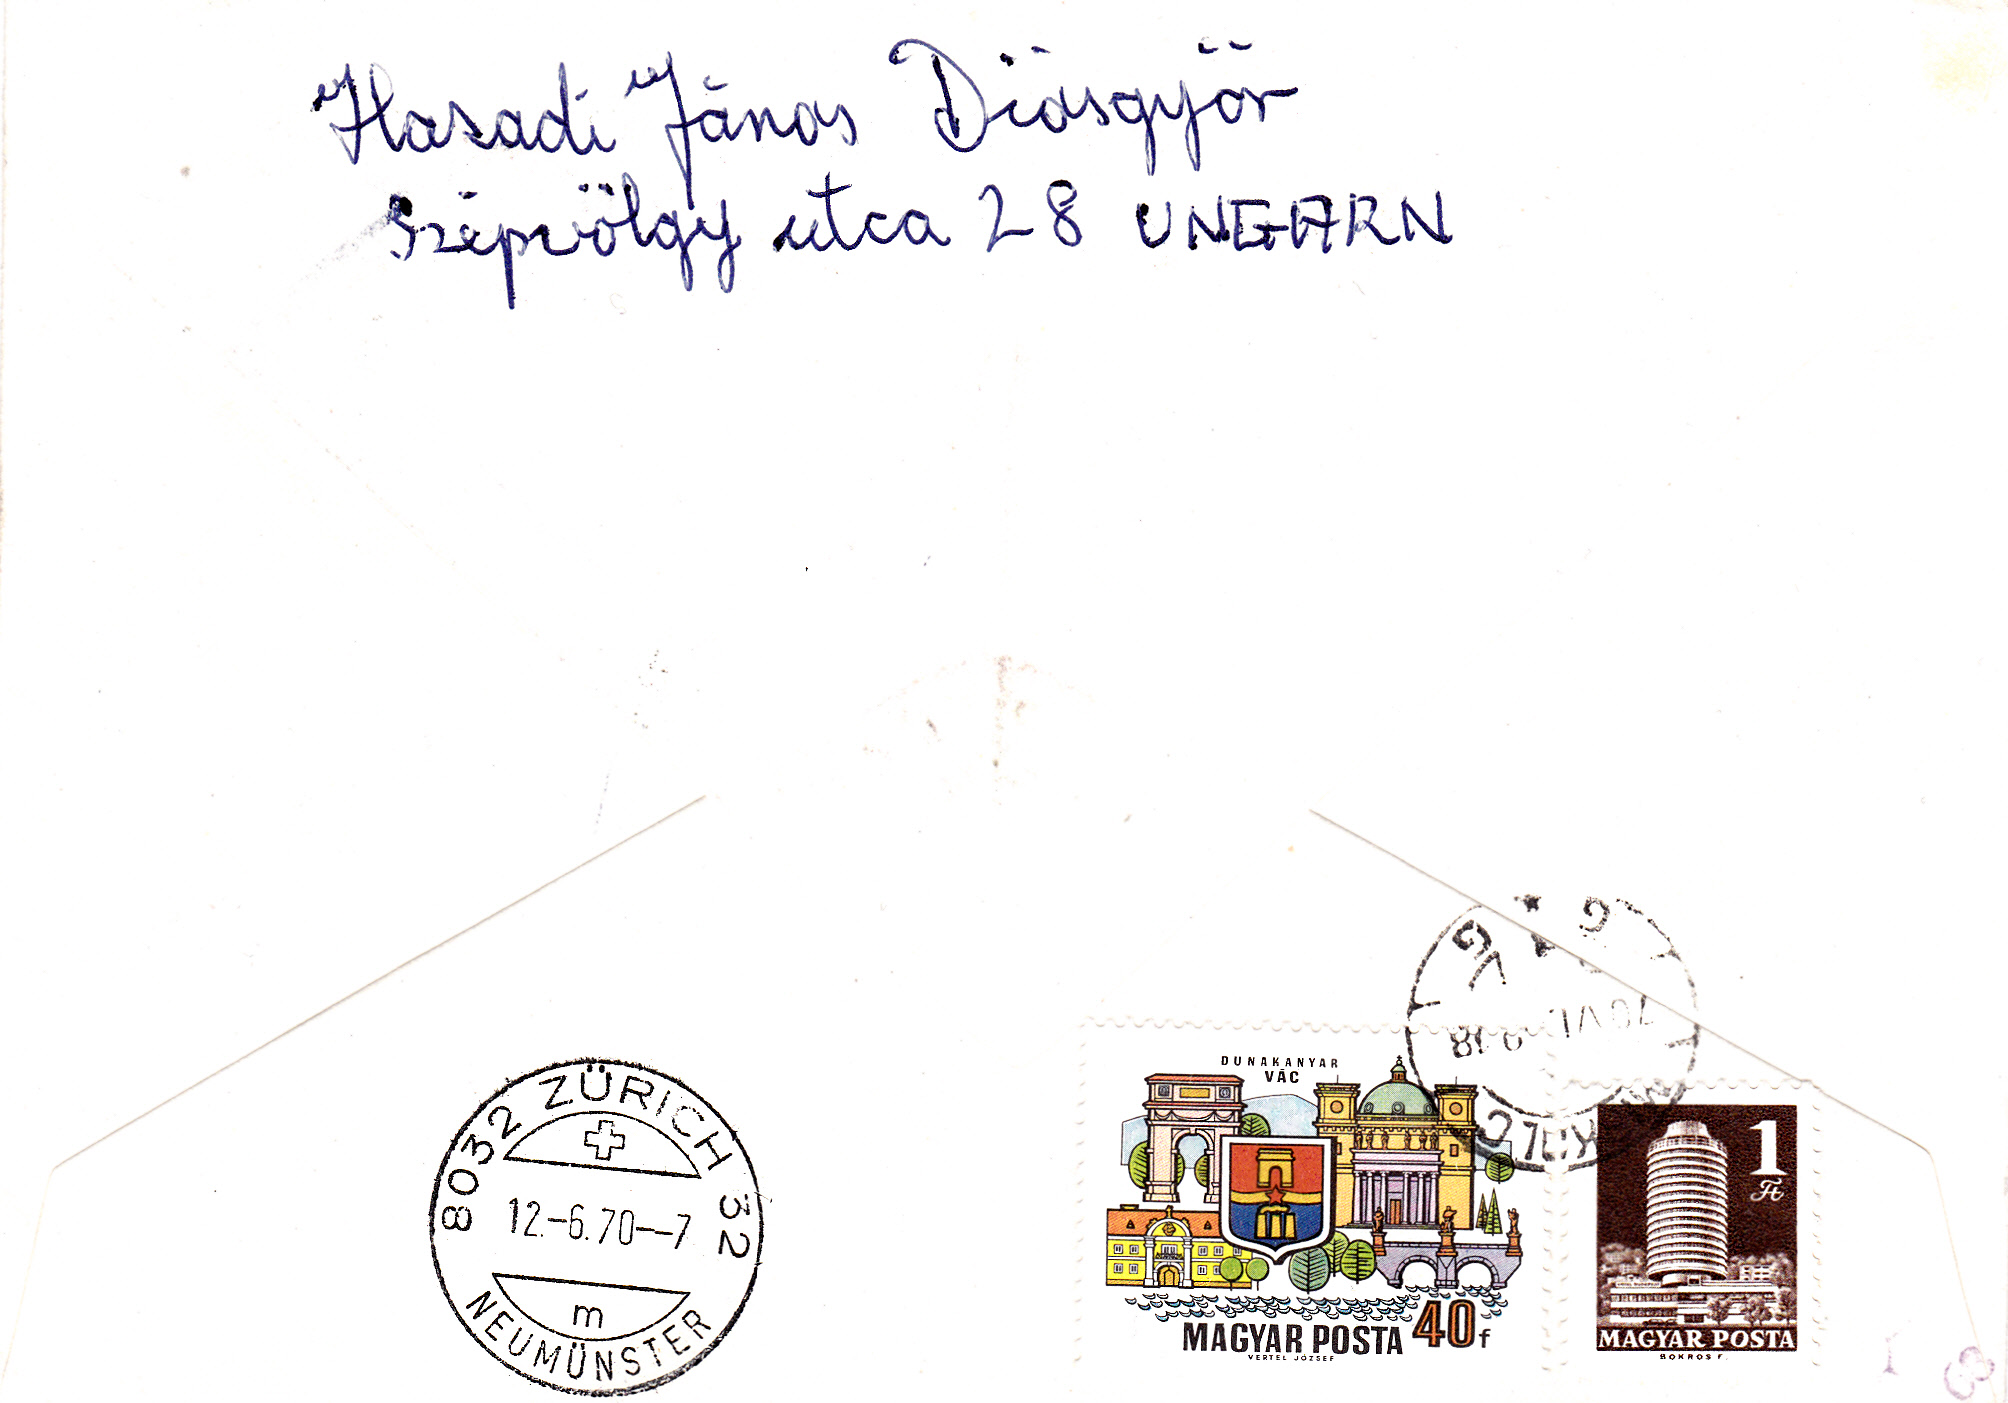 Hasadi János Diósgyör
Szépvölgy utca 28 UNGARN
8032 ZÜRICH 32
12.-6.70--7
m
NEUMÜNSTER
DUNAKANYAR
VÁC
MAGYAR POSTA 40f
VERTEL JÓZSEF
1
Ft
MAGYAR POSTA
BOKROS F.